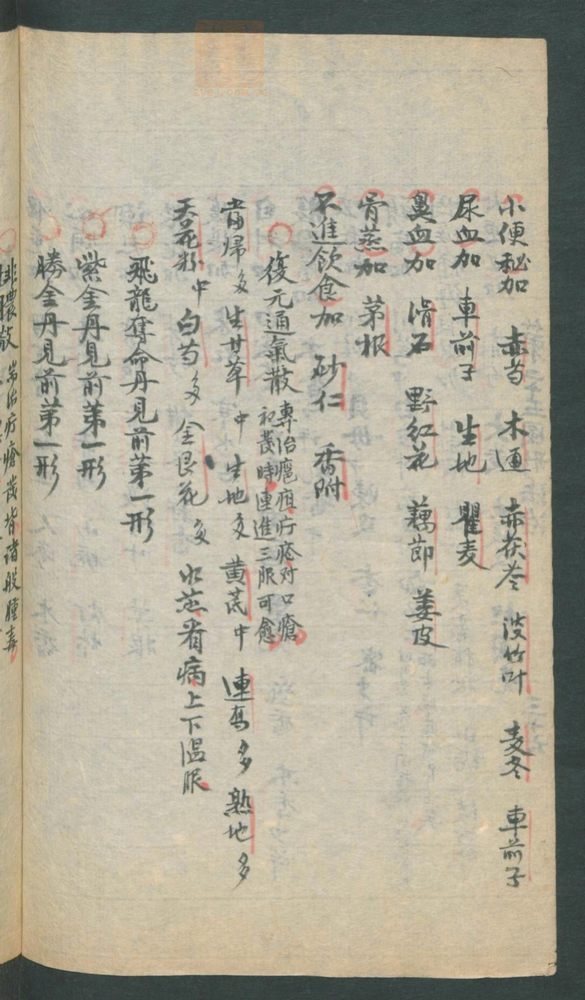 小便秘加 赤芍 木通 赤茯苓 淡竹叶 麦冬 車前子
尿血加 車前子 生地 瞿麦
鼻血加 滑石 野紅花 藕節 姜皮
骨蒸加 茅根
不進飲食加 砂仁 香附
復元通氣散 專治 疔瘡对口瘡
初發時連進三服可愈
當歸多 生甘草中 生地多 黄芪中 連喬多 熟地多
天花粉中 白芍多 金艮花多 水煎看病上下温服
飛龍奪命丹見前第一形
紫金丹見前第一形
勝金丹見前第一形
排膿散 治疔瘡發背諸般腫毒